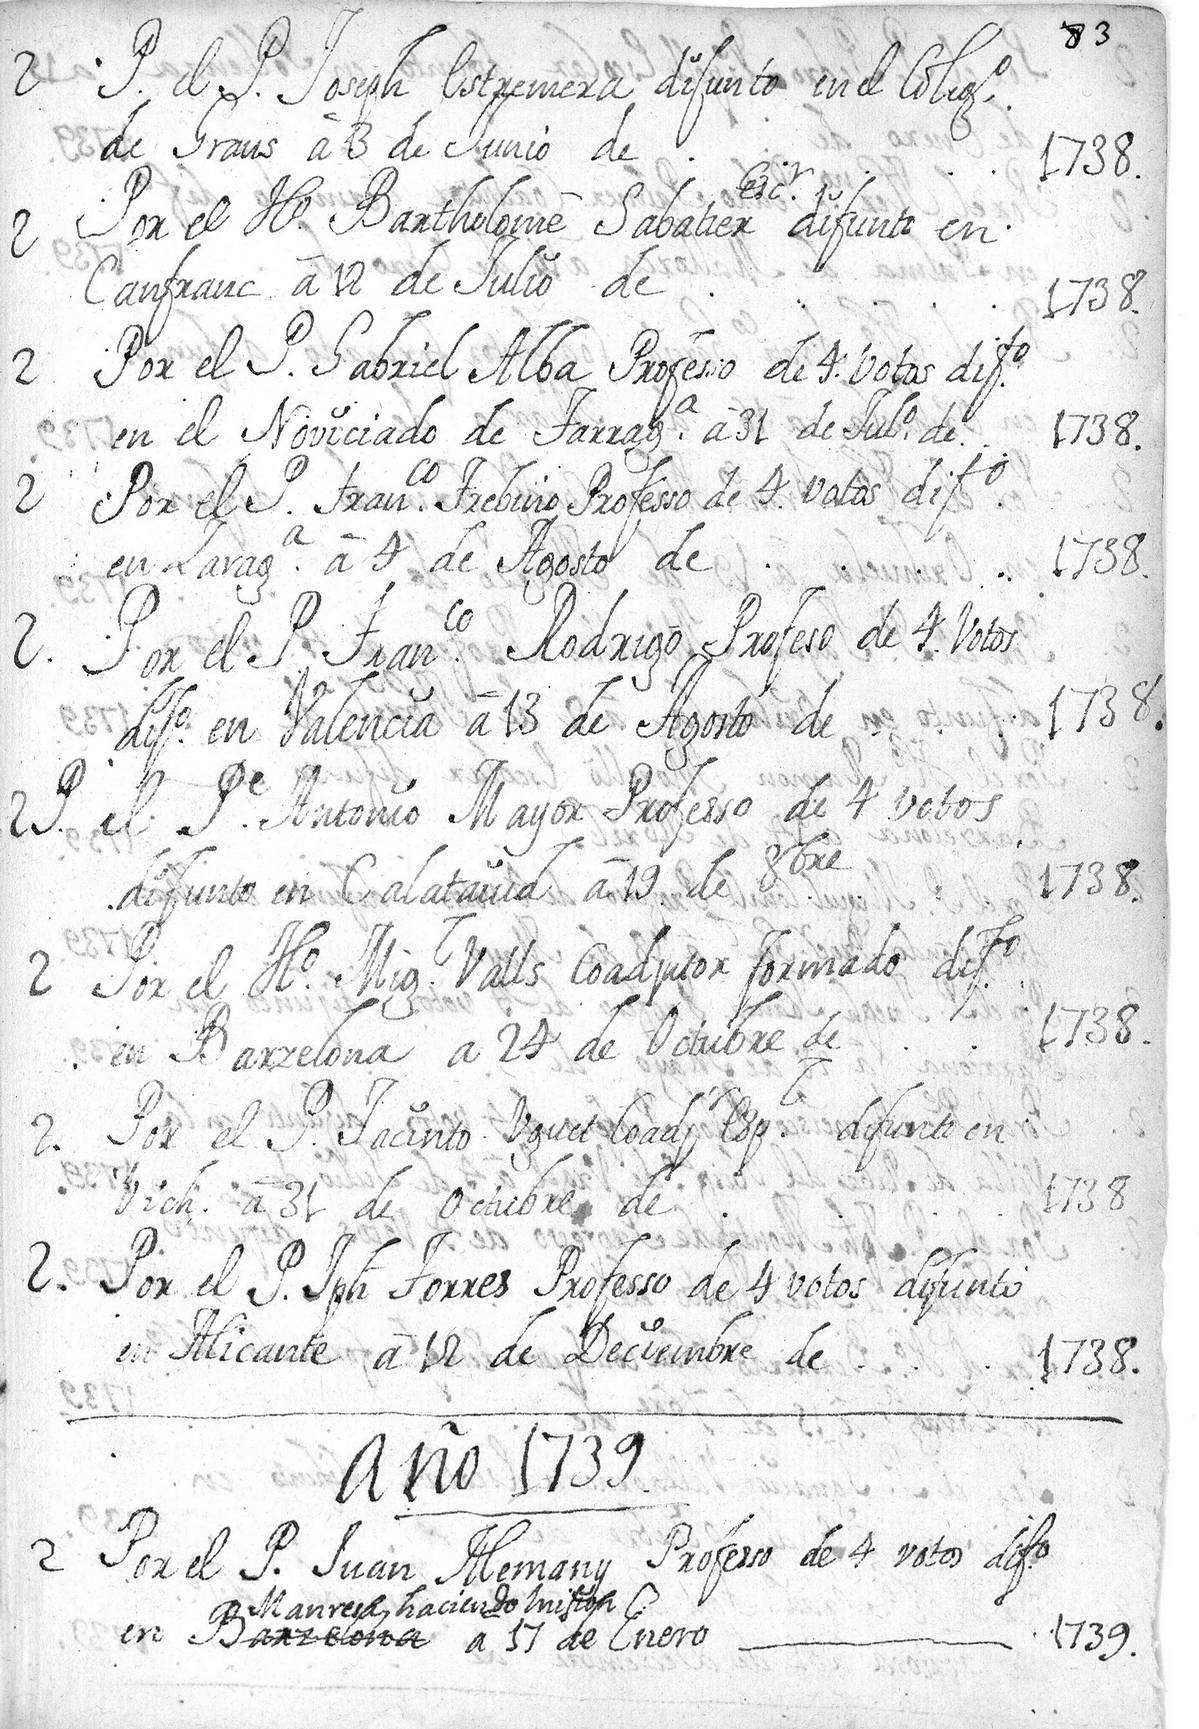 83
2 P. el P. Joseph Estremera difunto en el Coleg.º
de Graus â 3 de Junio de . . . . 1738.
Esc.r
2 Por el Hº. Bartholomê Sabater difunto en
Canfranc â 12 de Julio de . . . . 1738.
2 Por el P. Gabriel Alba Professo de 4. votos dif.to
en el Noviciado de Tarrag.a â 31 de Jul.º de . 1738.
2 Por el P. Fran.co Trebiño Professo de 4. votos dif.to
en Zarag.a â 4 de Agosto de . . . . 1738.
2. Por el P. Fran.co Rodrigo Profeso de 4. Votos
dif.º en Valencia â 13 de Agosto de . . . 1738.
2 P. el P.e Antonio Mayor Professo de 4 votos
difunto en Calataiud â 19. de 8bre 1738.
2 Por el Hº. Mig.l Valls Coadjutor formado dif.to
en Barzelona a 24 de Octubre de . . . 1738.
2. Por el P. Jacinto Uguet Coadj.r Esp.l difunto en
Vich. â 31 de Octubre de . . . . 1738
2. Por el P. Jph Torres Professo de 4 votos difunto
en Alicante â 12 de Deciembre de . . . 1738.
Año 1739.
2 Por el P. Juan Alemany Professo de 4 votos dif.to
Manresa, haciendo mision
en Barzelona a 17 de Enero 1739.